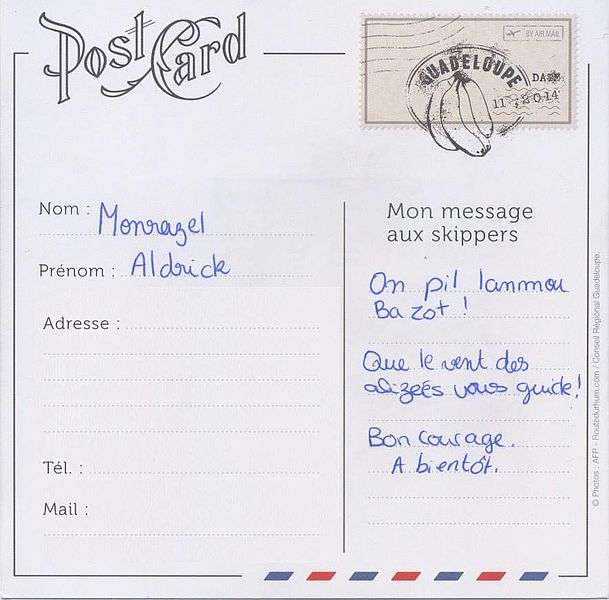 PostCard
BY AIR MAIL
GUADELOUPE
DATE
11 ; 2014
Nom : Monrazel
Prénom : Aldrick
Adresse :
Tél. :
Mail :
Mon message
aux skippers
On pil lanmou
Ba zot !
Que le vent des
alizeés vous guide !
Bon courage.
A bientôt.
© Photos : AFP - Routedurhum.com / Conseil Régional Guadeloupe.